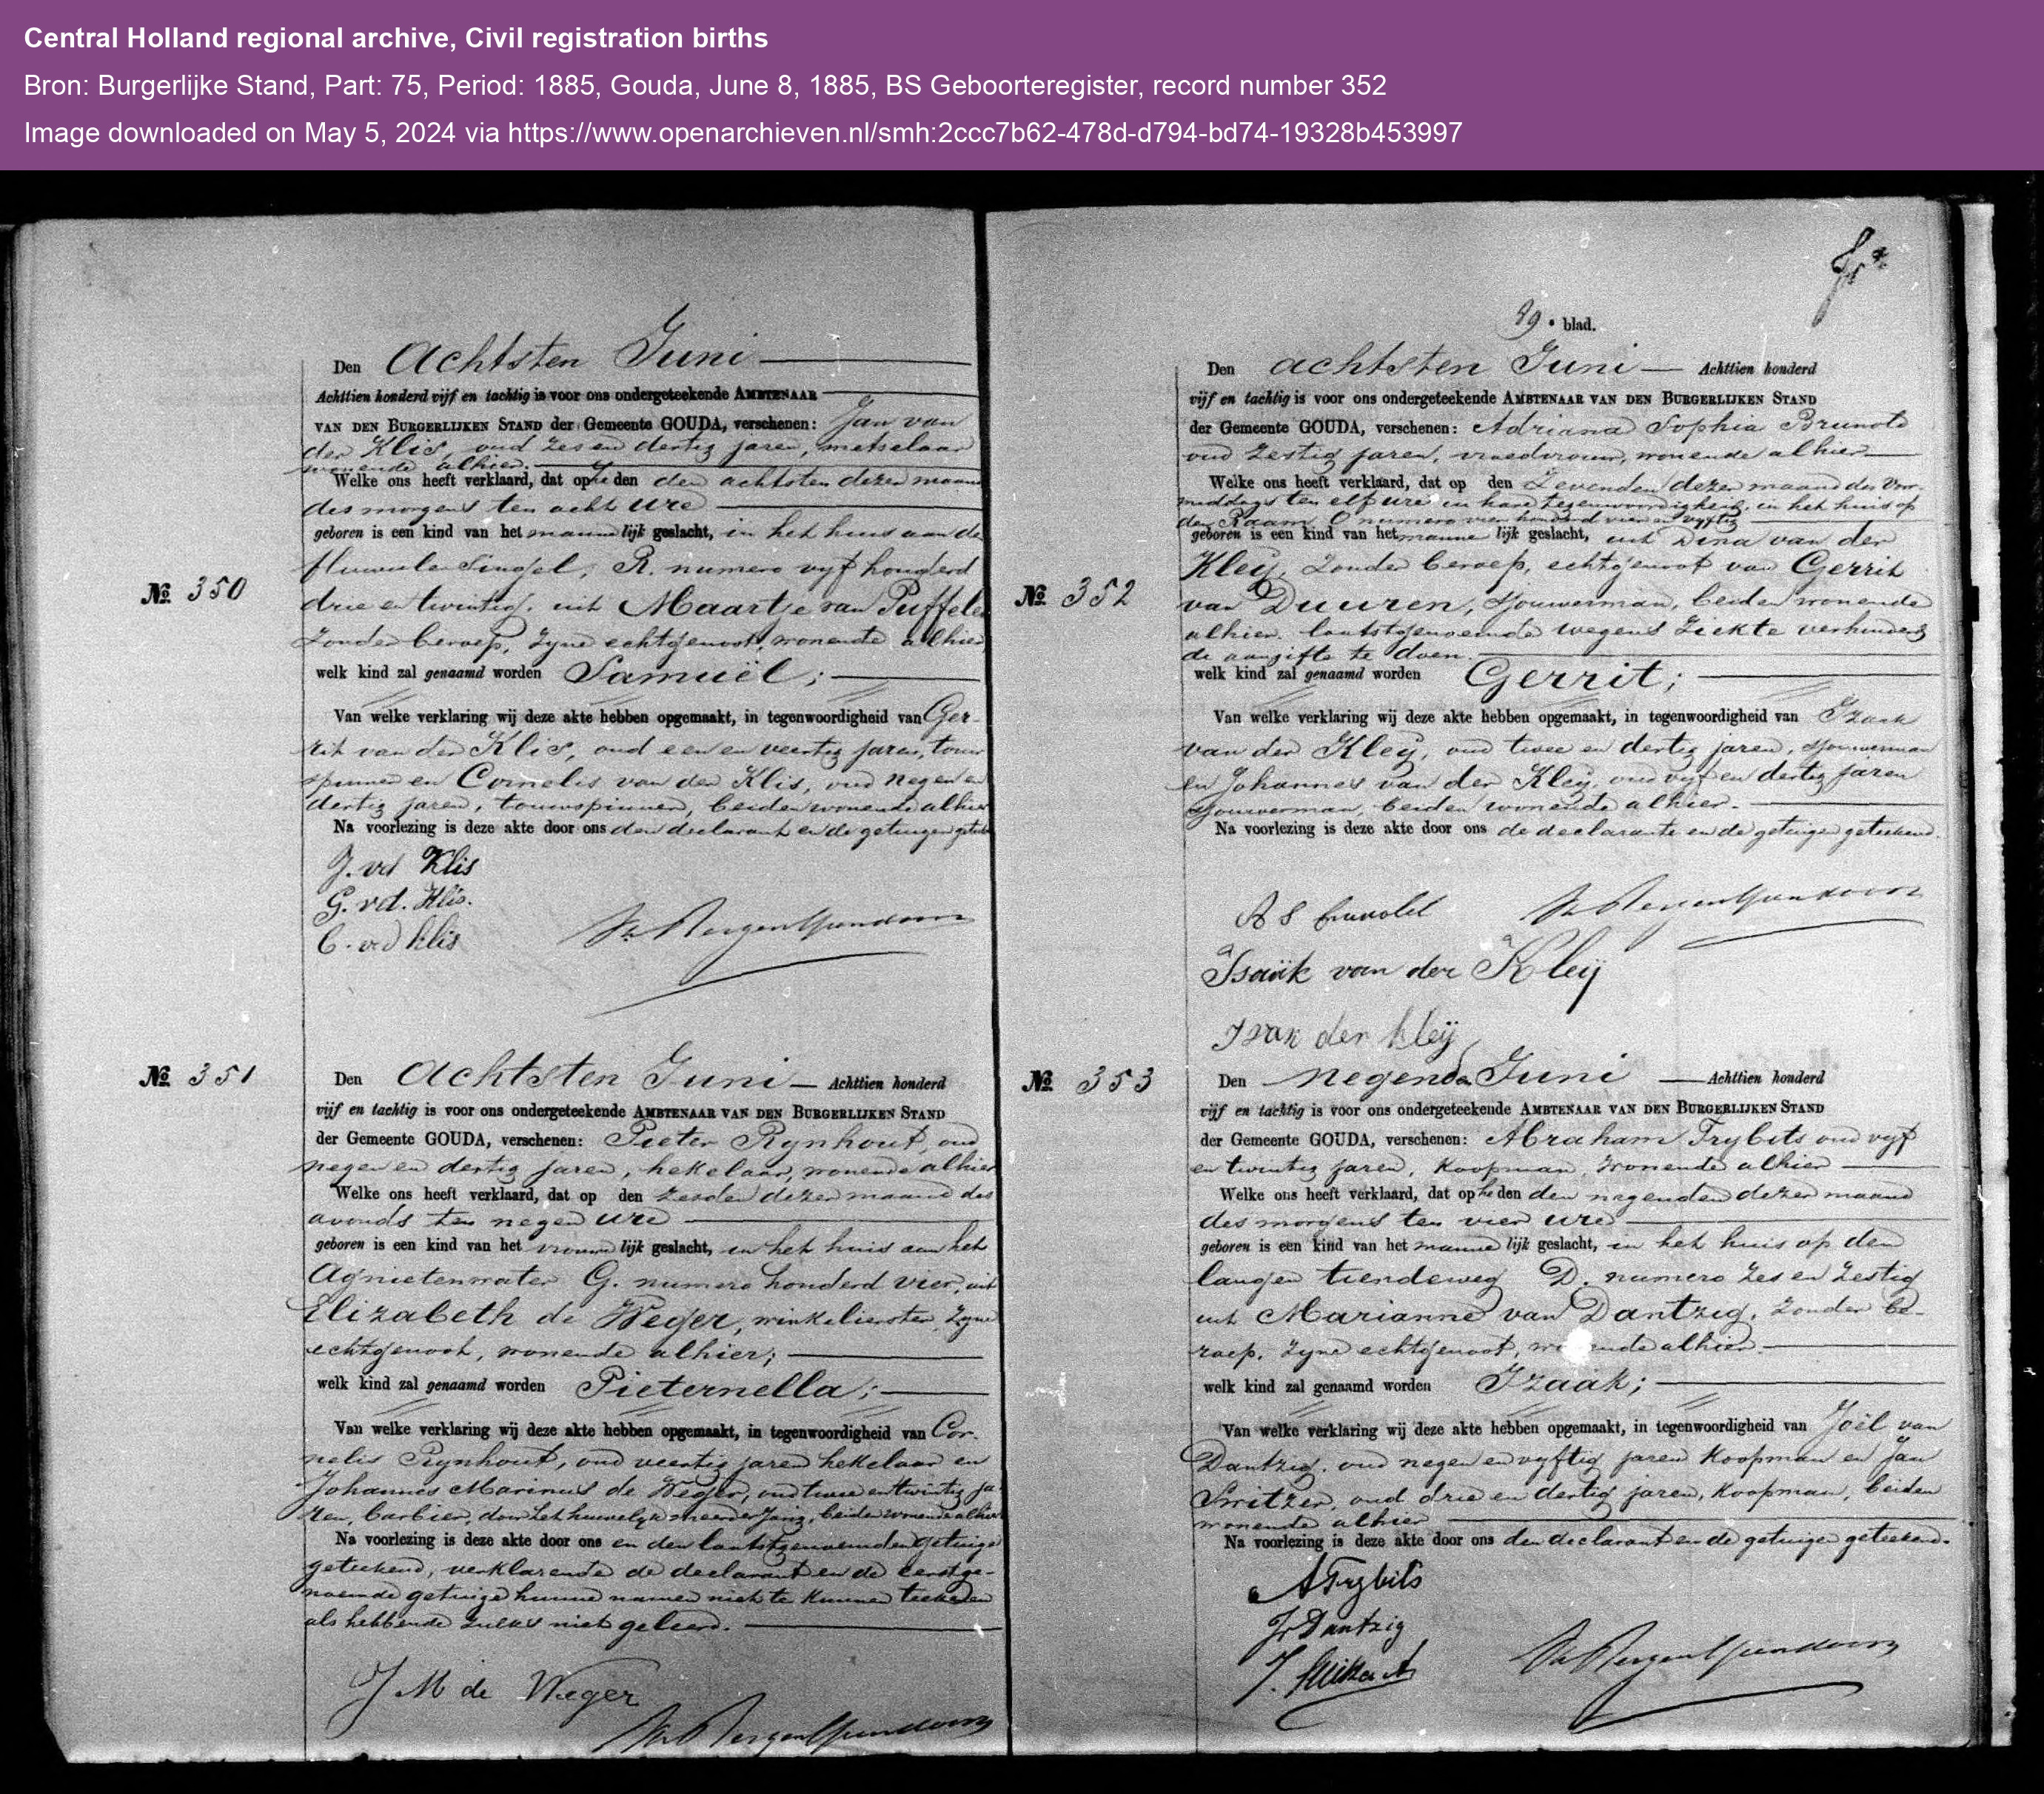 Central Holland regional archive, Civil registration births
Bron: Burgerlijke Stand, Part: 75, Period: 1885, Gouda, June 8, 1885, BS Geboorteregister, record number 352
Image downloaded on May 5, 2024 via https://www.openarchieven.nl/smh:2ccc7b62-478d-d794-bd74-19328b453997
No 350
Den Achtsten Juni
Achttien honderd vijf en tachtig is voor ons ondergeteekende AMBTENAAR
VAN DEN BURGERLIJKEN STAND der Gemeente GOUDA, verschenen: Jan van
der Klis, oud zes en dertig jaren, metselaar
wonende alhier.
Welke ons heeft verklaard, dat op heden den achtsten dezer maand
des morgens ten acht ure
geboren is een kind van het mannelijk geslacht, in het huis aan de
Fluweelen Singel, R. numero vyf honderd
drie en twintig, uit Maartje van Puffelen
zonder beroep, zyne echtgenoot, wonende alhier,
welk kind zal genaamd worden Samuël;
Van welke verklaring wij deze akte hebben opgemaakt, in tegenwoordigheid van Ger-
rit van der Klis, oud een en veertig jaren, touw
spinner en Cornelis van der Klis, oud negen en
dertig jaren, touwspinner, beiden wonende alhier
Na voorlezing is deze akte door ons den declarant en de getuigen geteekend
J. vd Klis
G. vd. Klis.
C. vd Klis
No 351
Den Achtsten Juni Achttien honderd
vijf en tachtig is voor ons ondergeteekende AMBTENAAR VAN DEN BURGERLIJKEN STAND
der Gemeente GOUDA, verschenen: Pieter Rynhout, oud
negen en dertig jaren, hekelaar, wonende alhier
Welke ons heeft verklaard, dat op den zesden dezer maand des
avonds ten negen ure
geboren is een kind van het vrouwelijk geslacht, in het huis aan het
Agnietenwater G. numero honderd vier, uit
Elizabeth de Weger, winkelierster, zyne
echtgenoot, wonende alhier;
welk kind zal genaamd worden Pieternella;
Van welke verklaring wij deze akte hebben opgemaakt, in tegenwoordigheid van Cor-
nelis Rynhout, oud veertig jaren hekelaar en
Johannes Marinus de Weger, oud twee en twintig ja-
ren, barbier, door het huwelyk meerderjarig, beiden wonende alhier
Na voorlezing is deze akte door ons en den laatstgenoemden getuige
geteekend, verklarende de declarant en de eerstge-
noemde getuige hunne namen niet te kunnen teekenen
als hebbende zulks niet geleerd.
J M de Weger
89e blad.
No 352
Den achtsten Juni Achttien honderd
vijf en tachtig is voor ons ondergeteekende AMBTENAAR VAN DEN BURGERLIJKEN STAND
der Gemeente GOUDA, verschenen: Adriana Sophia Brunott
oud zestig jaren, vroedvrouw, wonende alhier
Welke ons heeft verklaard, dat op den zevenden dezer maand des voor-
middags ten elf ure in hare tegenwoordigheid, in het huis op
den Raam O numero vier honderd vier en vyftig
geboren is een kind van het mannelijk geslacht, uit Dina van der
Kley, zonder beroep, echtgenoot van Gerrit
van Duuren, sjouwerman, beiden wonende
alhier. laatstgenoemde wegens ziekte verhinderd
de aangifte te doen.
welk kind zal genaamd worden Gerrit;
Van welke verklaring wij deze akte hebben opgemaakt, in tegenwoordigheid van Izaak
van der Kley, oud twee en dertig jaren, sjouwerman
en Johannes van der Kley, oud vyf en dertig jaren
sjouwerman, beiden wonende alhier.
Na voorlezing is deze akte door ons de declarante en de getuigen geteekend.
A S
Isaäk van der Kleÿ
J van der kleÿ
No 353
Den Negenden Juni Achttien honderd
vijf en tachtig is voor ons ondergeteekende AMBTENAAR VAN DEN BURGERLIJKEN STAND
der Gemeente GOUDA, verschenen: Abraham Trybits oud vyf
en twintig jaren, koopman, wonende alhier
Welke ons heeft verklaard, dat op heden den negenden dezer maand
des morgens ten vier ure
geboren is een kind van het mannelijk geslacht, in het huis op den
langen tiendeweg D. numero zes en zestig
uit Marianne van Dantzig, zonder be-
roep, zyne echtgenoot, wonende alhier.
welk kind zal genaamd worden Izaak;
Van welke verklaring wij deze akte hebben opgemaakt, in tegenwoordigheid van Joël van
Dantzig, oud negen en vyftig jaren koopman en Jan
Switzer, oud drie en dertig jaren, koopman, beiden
wonende alhier
Na voorlezing is deze akte door ons den declarant en de getuigen geteekend.
A Trybits
Jv Dantzig